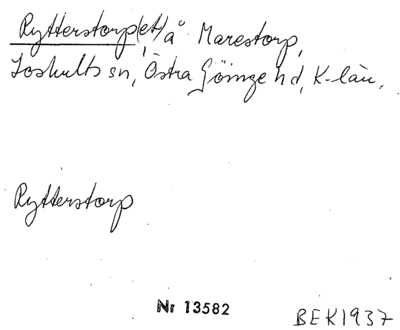 Rytterstorp(et) å Marestorp,
Loshults sn, Östra Göinge hd, K-län.
Rytterstorp
Nr 13582
BEK1937